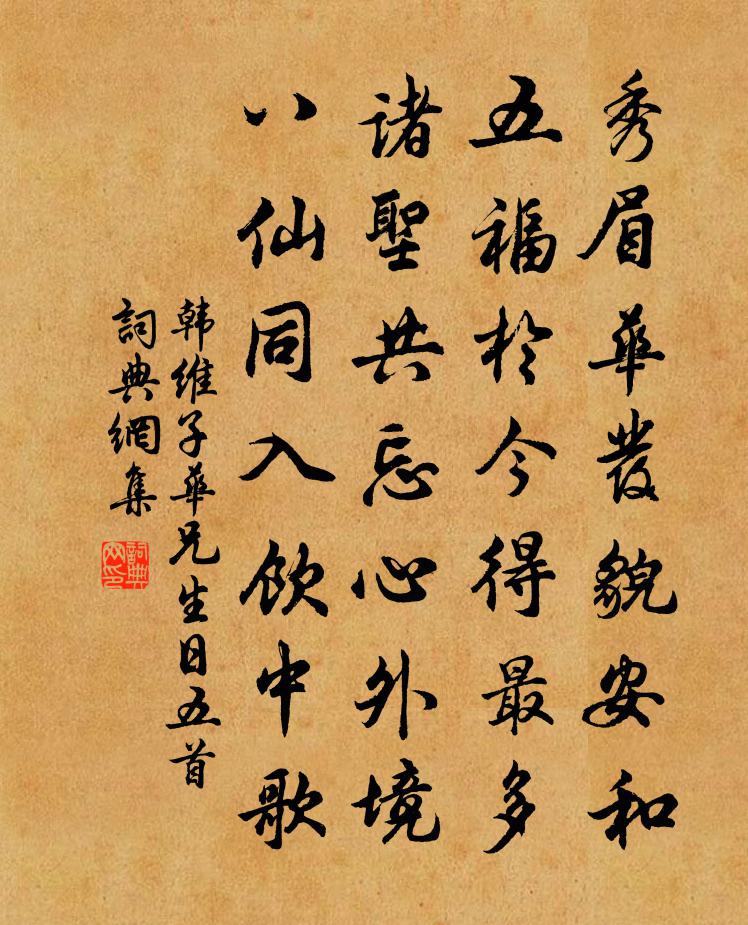 秀眉華髮貌安和
五福於今得最多
諸聖共忘心外境
八仙同入飲中歌
韩維子華兄生日五首
詞典網集
詞典网印